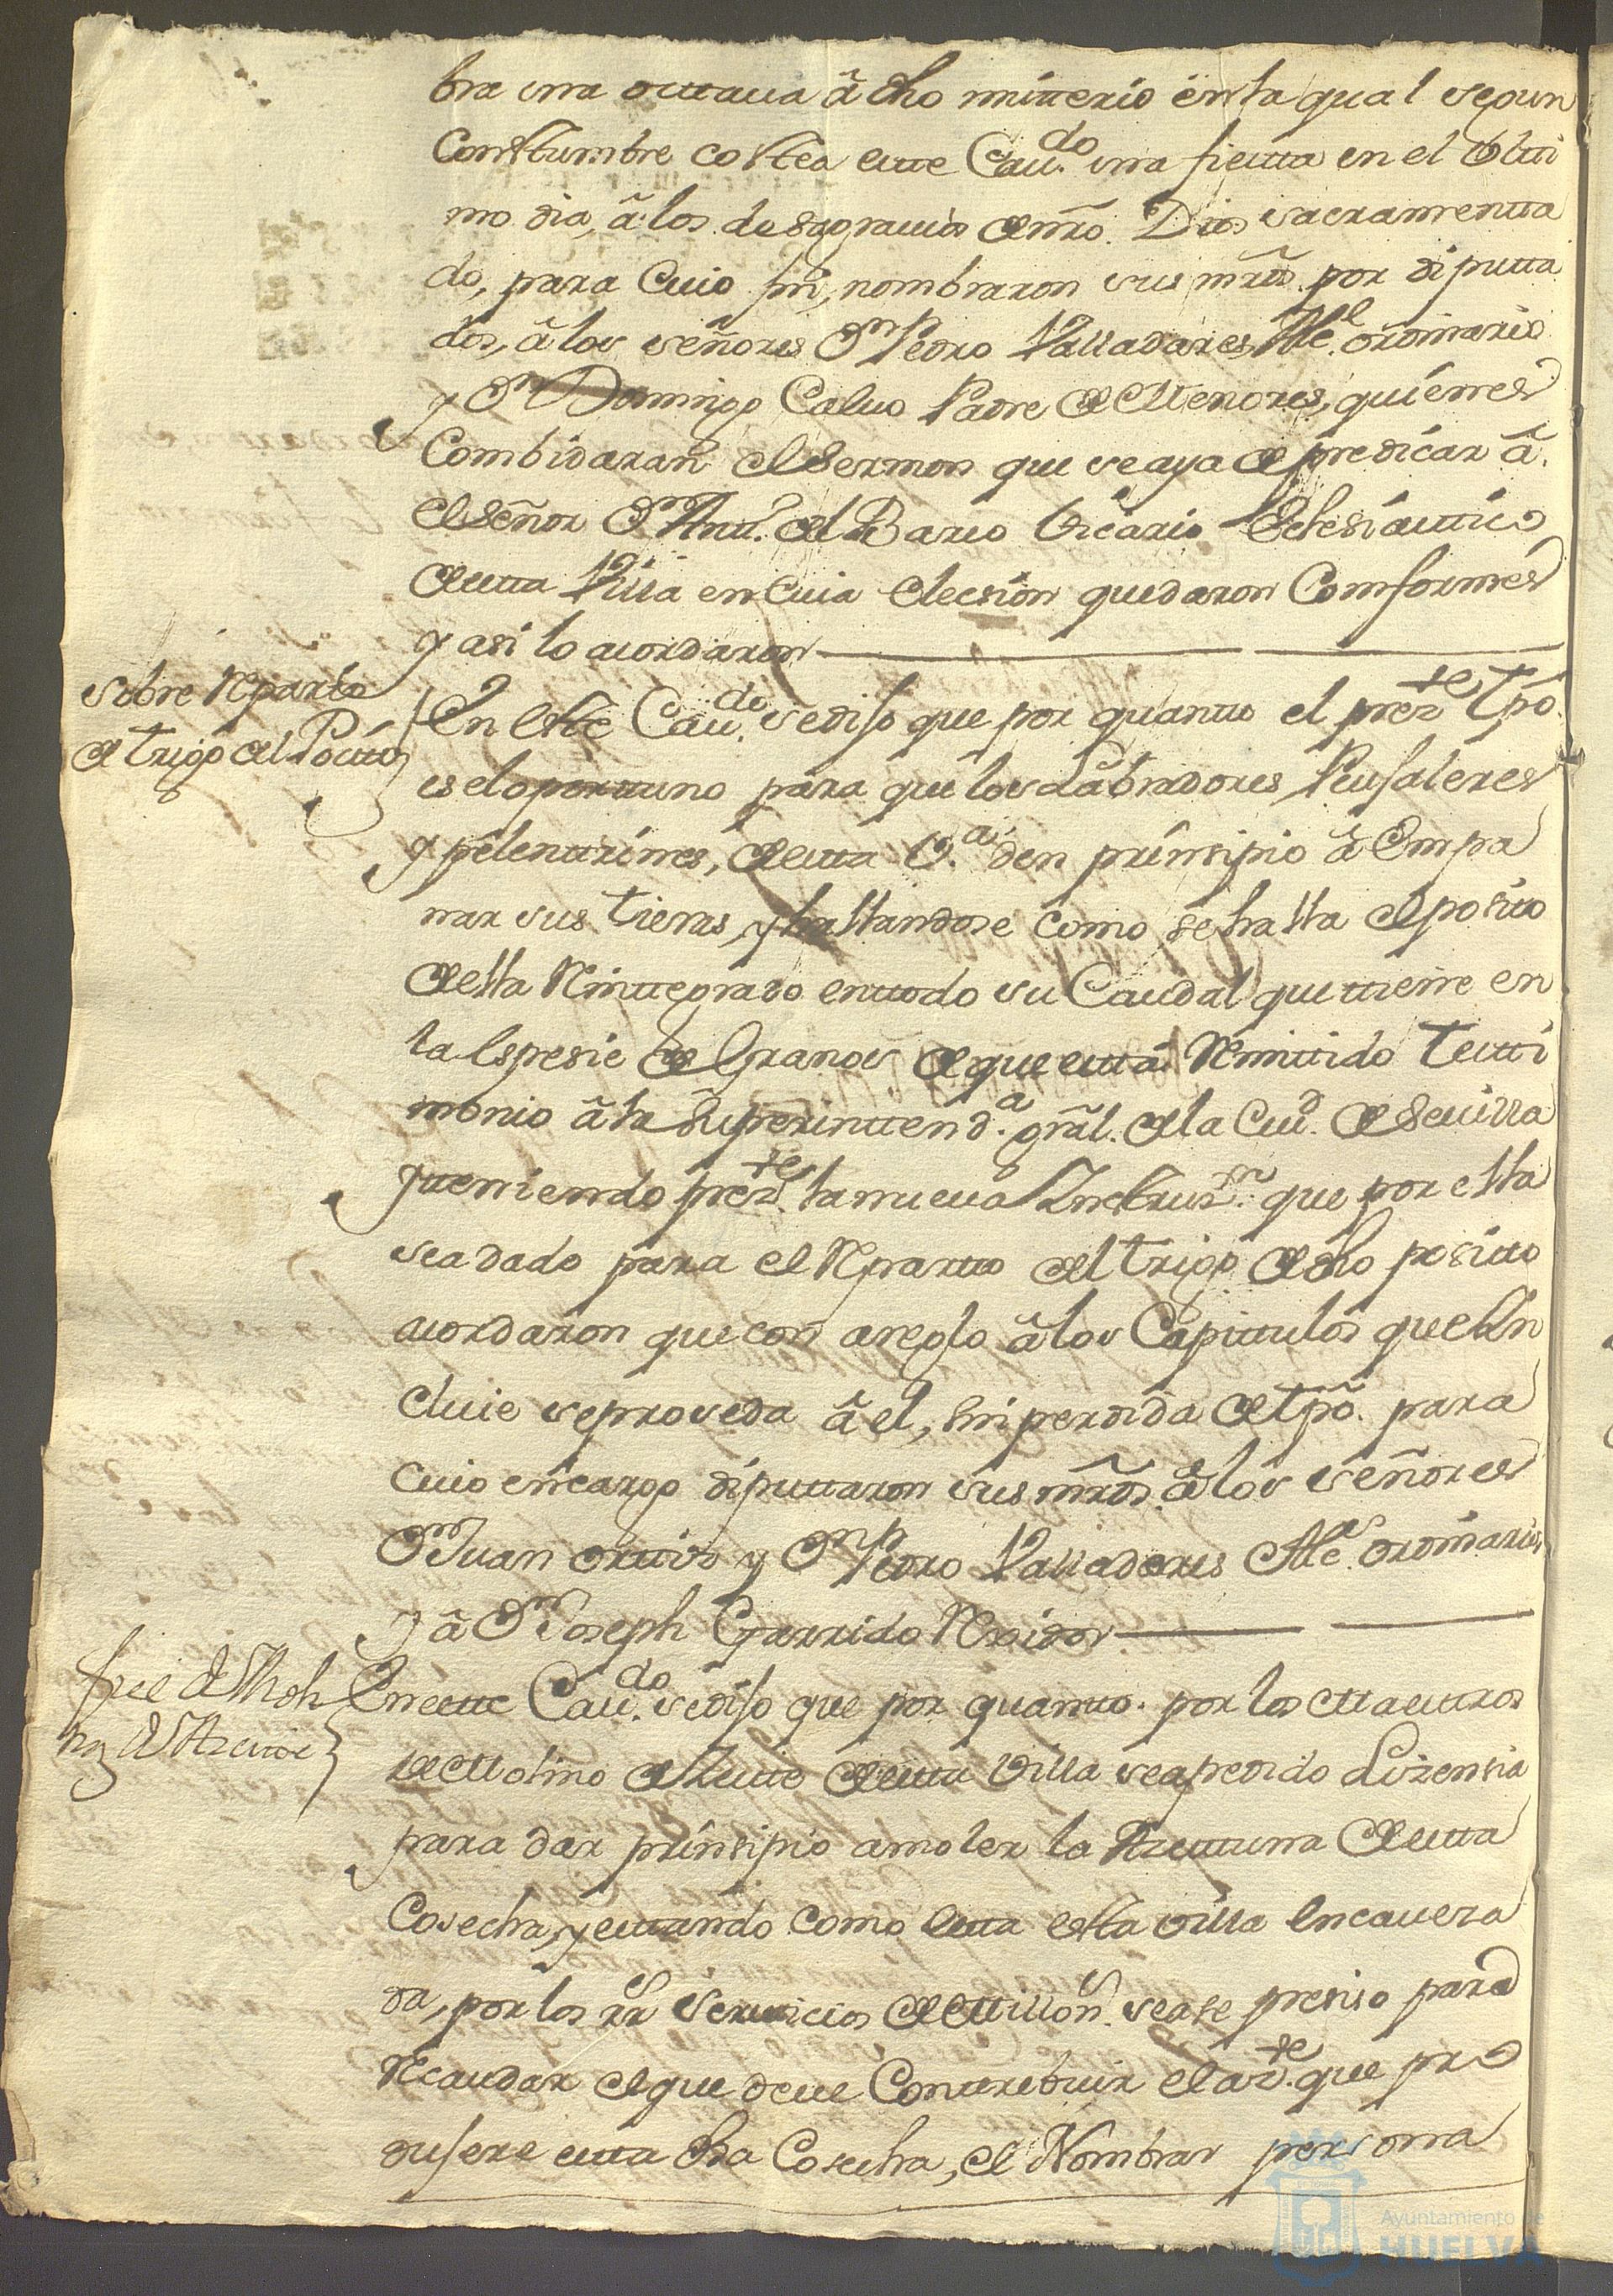 bra una octtaua â dho mitterio en la qual segun
Constumbre costea este Cau.do una fiestta en el Vltti
mo dia, â los desagrauios de nro. Dios sacramentta
do, para Cuio fin, nombraron sus mrds. por diputta
dos, â los señores Dn Pedro Valladares Alc.e ordinario
y Dn Domingo Caluo Padre de Menores, quienes
Combidaran el Sermon que se aya de predicar â
el señor Dn Antt.o del Barco Vicario Eclesiasttico
de estta Villa en Cuia elecsion quedaron Comformes
y asi lo acordaron
sobre Rparto
de trigo del Positto
En este Cau.do se diso que por quantto el prez.te tpô.
es el oporttuno para que los Labradores Peujaleres
y pelenttrines, de estta V.a den prinsipio â Empa
nar sus tierras, y hallandose como se halla el positto
de ella Rinttegrado en ttodo su Caudal que ttiene en
la Espesie de Granos de que estta Remittido testti
monio â la Superinttend.a grâl. de la Ciud. de Seuilla
y tteniendo prez.te la nueua Instrus.n que por ella
se a dado para el Rpartto del trigo de dho positto
acordaron que con areglo â los Capittulos que In
cluie se proseda â el, sin perdida de tpô. para
cuio encargo diputtaron sus mrds. â los señores
Dn Juan orttiz y Dn Pedro Valladares Alc.es ordinarios
y â Dn Joseph Garrido Rexidor
fiel de Moli
no de Azeite
En estte Cau.do se diso que por quantto por los Maesttros
de Molino de Azeitte de estta Villa se a pedido Lizensia
para dar prinsipio a moler la Azeittuna de estta
Cosecha, y esttando como estta esta villa Encaueza
da, por los rr.s Seruicios de Millon.s se ase presiso para
Recaudar el que deue Conttribuir el az.te que pro
dusere estta dha Cosecha, el Nombrar persona
Ayuntamiento de
HUELVA